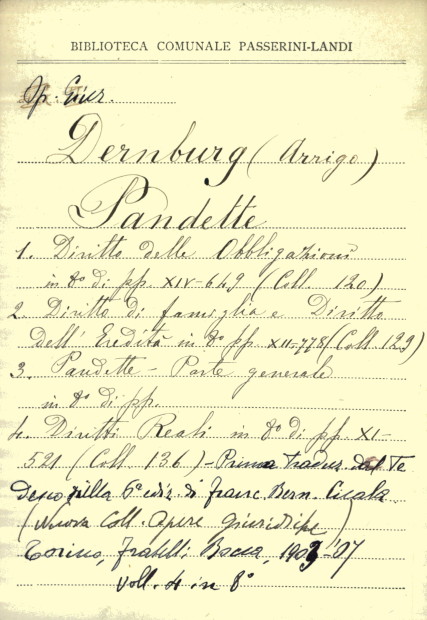 BIBLIOTECA COMUNALE PASSERINI-LANDI
Op. Giur.
Dernburg (Arrigo)
Pandette
1. Diritto delle Obbligazioni
in 8° di pp. XIV-649 (Coll. 120)
2. Diritto di famiglia e Diritto
dell' Eredità in 8° pp. XII-778 (Coll. 129)
3. Pandette - Parte generale
in 8° di pp.
4. Diritti Reali in 8° di pp. XI-
521 (Coll. 136) - Prima traduz. dal Te
desco sulla 6ª ediz. di Franc. Bern. Cicala
(Nuova Coll. opere giuridiche)
Torino, Fratelli Bocca, 1903-'07
Voll. 4 in 8°